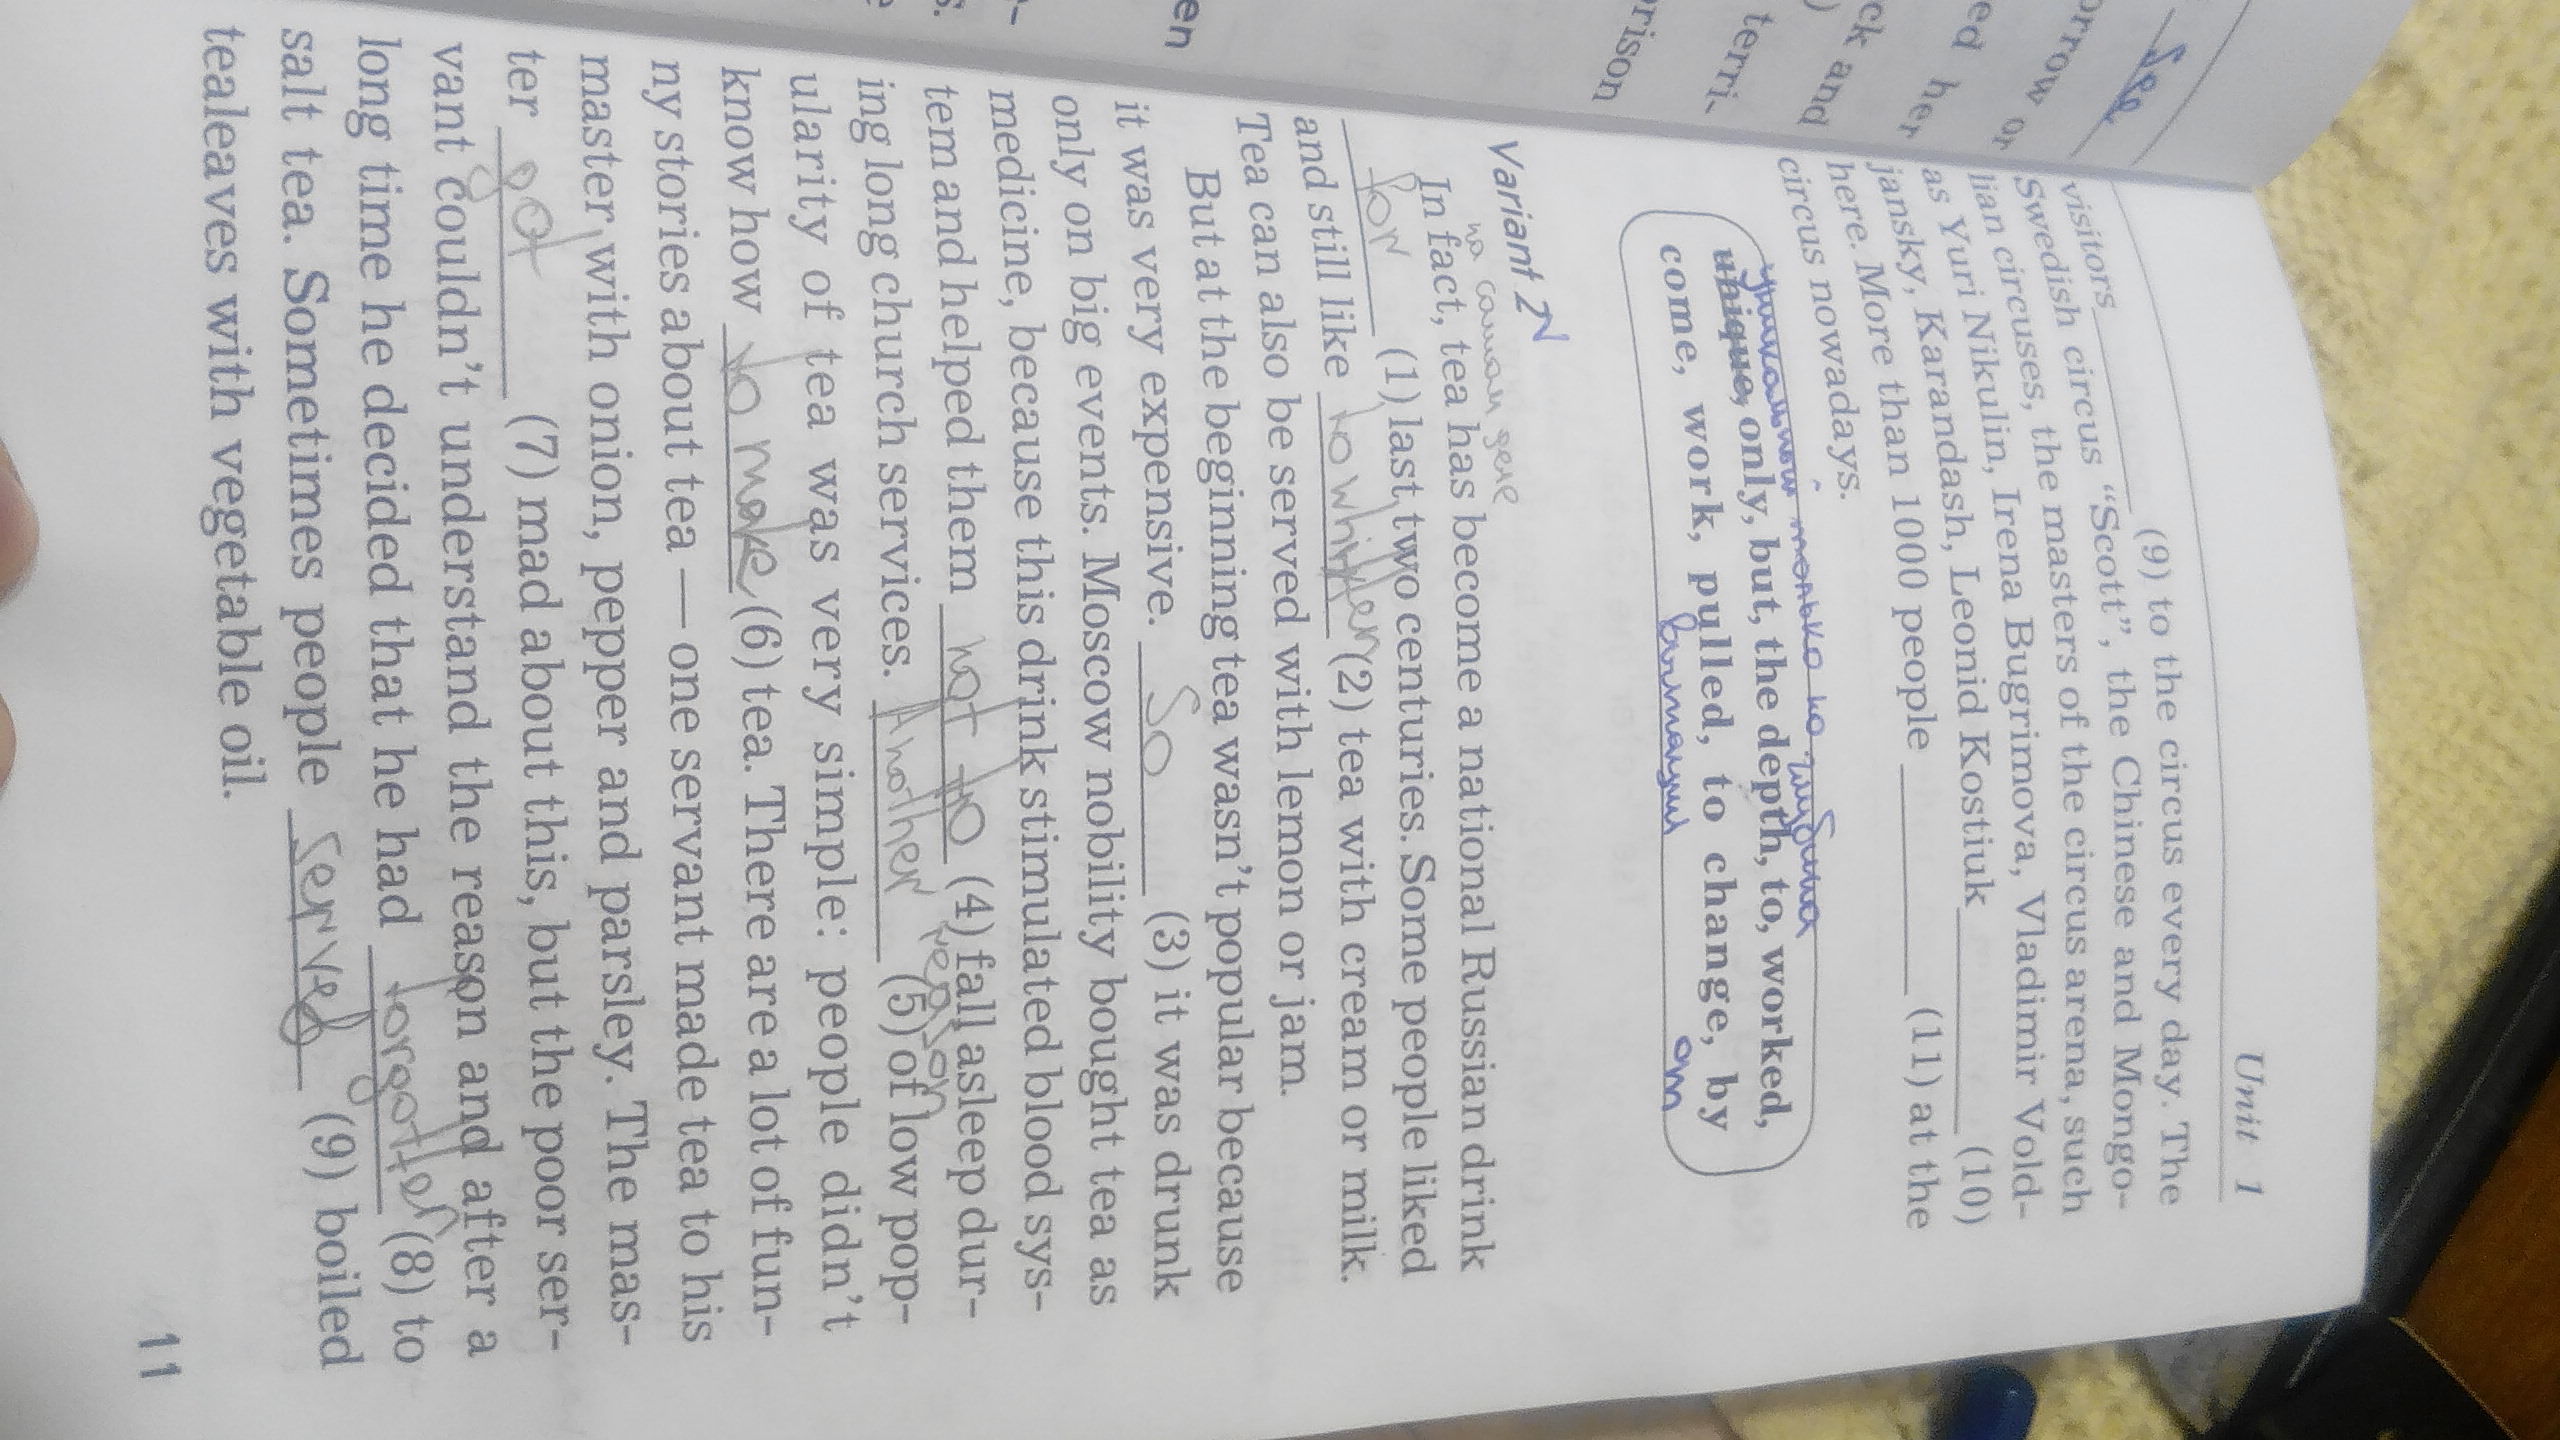 See
orrow or
ed her
ck and
terri-
rison
en
Unit 1
visitors (9) to the circus every day. The
Swedish circus "Scott", the Chinese and Mongo-
lian circuses, the masters of the circus arena, such
as Yuri Nikulin, Irena Bugrimova, Vladimir Vold-
jansky, Karandash, Leonid Kostiuk (10)
here. More than 1000 people (11) at the
circus nowadays.
unique, only, but, the depth, to, worked,
come, work, pulled, to change, by
Variant 2
на самом деле
In fact, tea has become a national Russian drink
for (1) last two centuries. Some people liked
and still like to whitten (2) tea with cream or milk.
Tea can also be served with lemon or jam.
But at the beginning tea wasn't popular because
it was very expensive. So (3) it was drunk
only on big events. Moscow nobility bought tea as
medicine, because this drink stimulated blood sys-
tem and helped them not to (4) fall asleep dur-
ing long church services. Another reason (5) of low pop-
ularity of tea was very simple: people didn't
know how to make (6) tea. There are a lot of fun-
ny stories about tea — one servant made tea to his
master with onion, pepper and parsley. The mas-
ter got (7) mad about this, but the poor ser-
vant couldn't understand the reason and after a
long time he decided that he had forgotten (8) to
salt tea. Sometimes people served (9) boiled
tealeaves with vegetable oil.
11